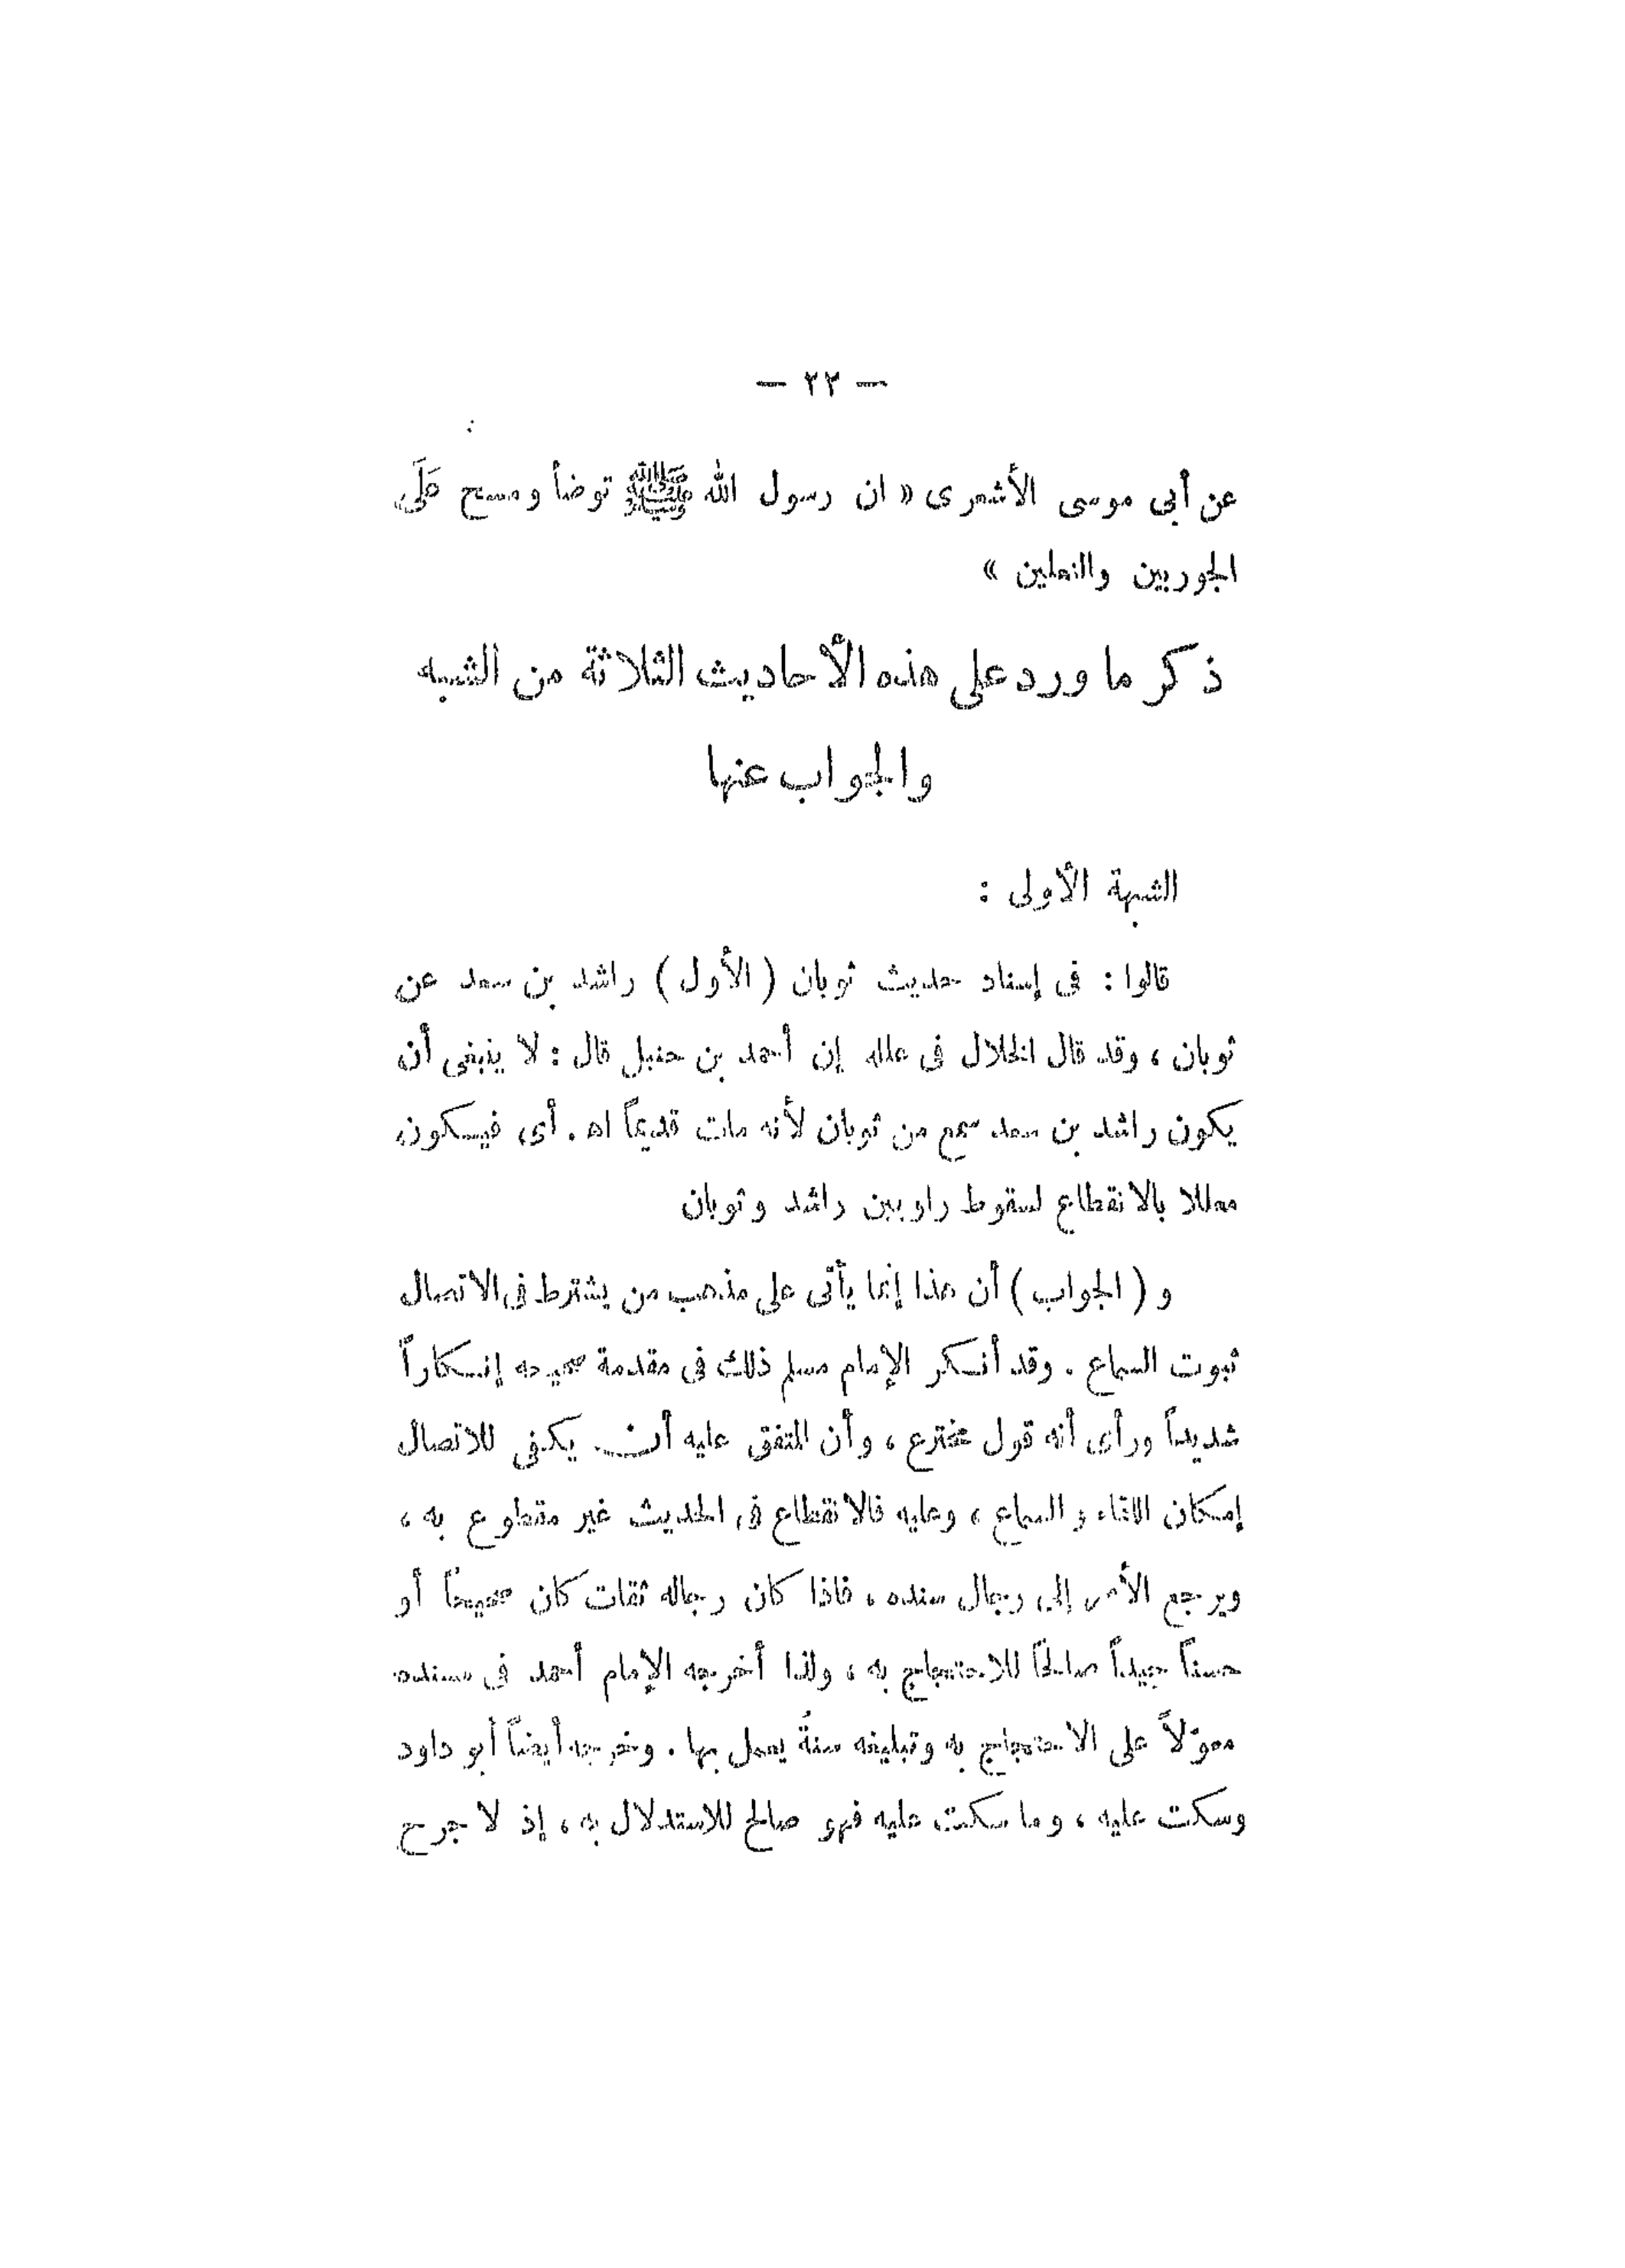 — ٢٣ —
عن أبى موسى الأشعرى « ان رسول الله ﷺ توضأ ومسح عَلَى
الجوربين والنعلين »
ذكر ما ورد على هذه الأحاديث الثلاثة من الشبه
والجواب عنها
الشبهة الأولى :
قالوا : فى إسناد حديث ثوبان ( الأول ) راشد بن سعد عن
ثوبان ، وقد قال الخلال فى علله إن أحمد بن حنبل قال : لا ينبغى أن
يكون راشد بن سعد سمع من ثوبان لأنه مات قديماً اه . أى فيكون
معللا بالانقطاع لسقوط راو بين راشد وثوبان
و ( الجواب ) أن هذا إنما يأتى على مذهب من يشترط فى الاتصال
ثبوت السماع . وقد أنكر الإمام مسلم ذلك فى مقدمة صحيحه إنكاراً
شديداً ورأى أنه قول مخترع ، وأن المتفق عليه أن يكفى للاتصال
إمكان اللقاء والسماع ، وعليه فالانقطاع فى الحديث غير مقطوع به ،
ويرجع الأمر إلى رجال سنده ، فاذا كان رجاله ثقات كان صحيحاً أو
حسناً جيداً صالحاً للاحتجاج به ، ولذا أخرجه الإمام أحمد فى مسنده
معوّلاً على الاحتجاج به وتبليغه سنةً يعمل بها . وخرجه أيضاً أبو داود
وسكت عليه ، وما سكت عليه فهو صالح للاستدلال به ، إذ لا جرح